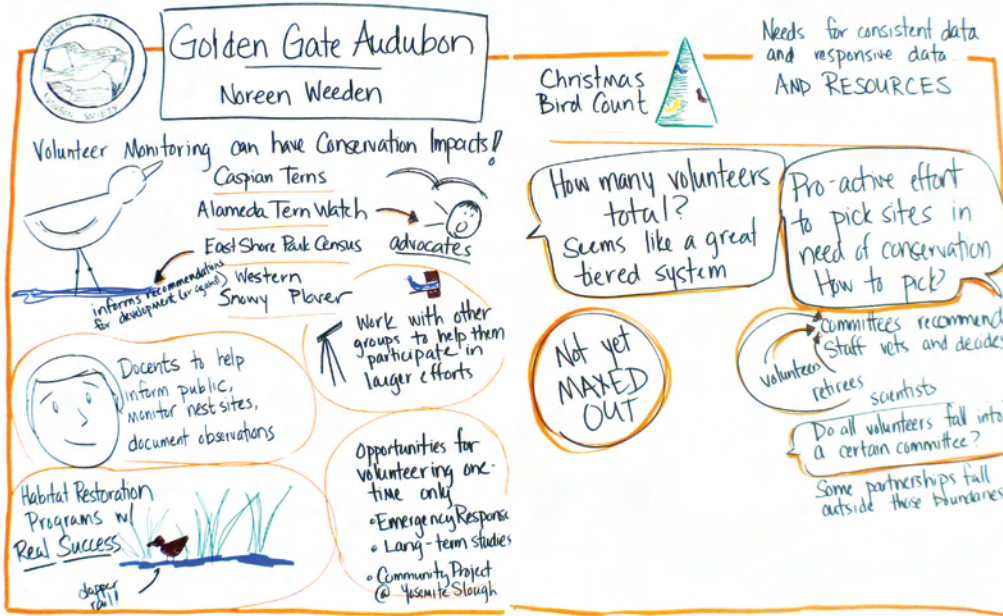 GOLDEN GATE
AUDUBON SOCIETY
Golden Gate Audubon
Noreen Weeden
Volunteer Monitoring can have Conservation Impacts!
Caspian Terns
Alameda Tern Watch
advocates
East Shore Park Census
informs recommendations
for development (or against)
Western
Snowy Plover
Work with other
groups to help them
participate in
larger efforts
Docents to help
inform public,
monitor nest sites,
document observations
Habitat Restoration
Programs w/
Real Success
clapper
rail!
Opportunities for
volunteering one-
time only
• Emergency Response
• Long-term studies
• Community Project
@ Yosemite Slough
Christmas
Bird Count
Needs for consistent data
and responsive data.
AND RESOURCES
How many volunteers
total?
Seems like a great
tiered system
Pro-active effort
to pick sites in
need of conservation
How to pick?
Not yet
MAXED
OUT
committees recommend
Staff vets and decides
volunteers
retirees
scientists
Do all volunteers fall into
a certain committee?
Some partnerships fall
outside those boundaries